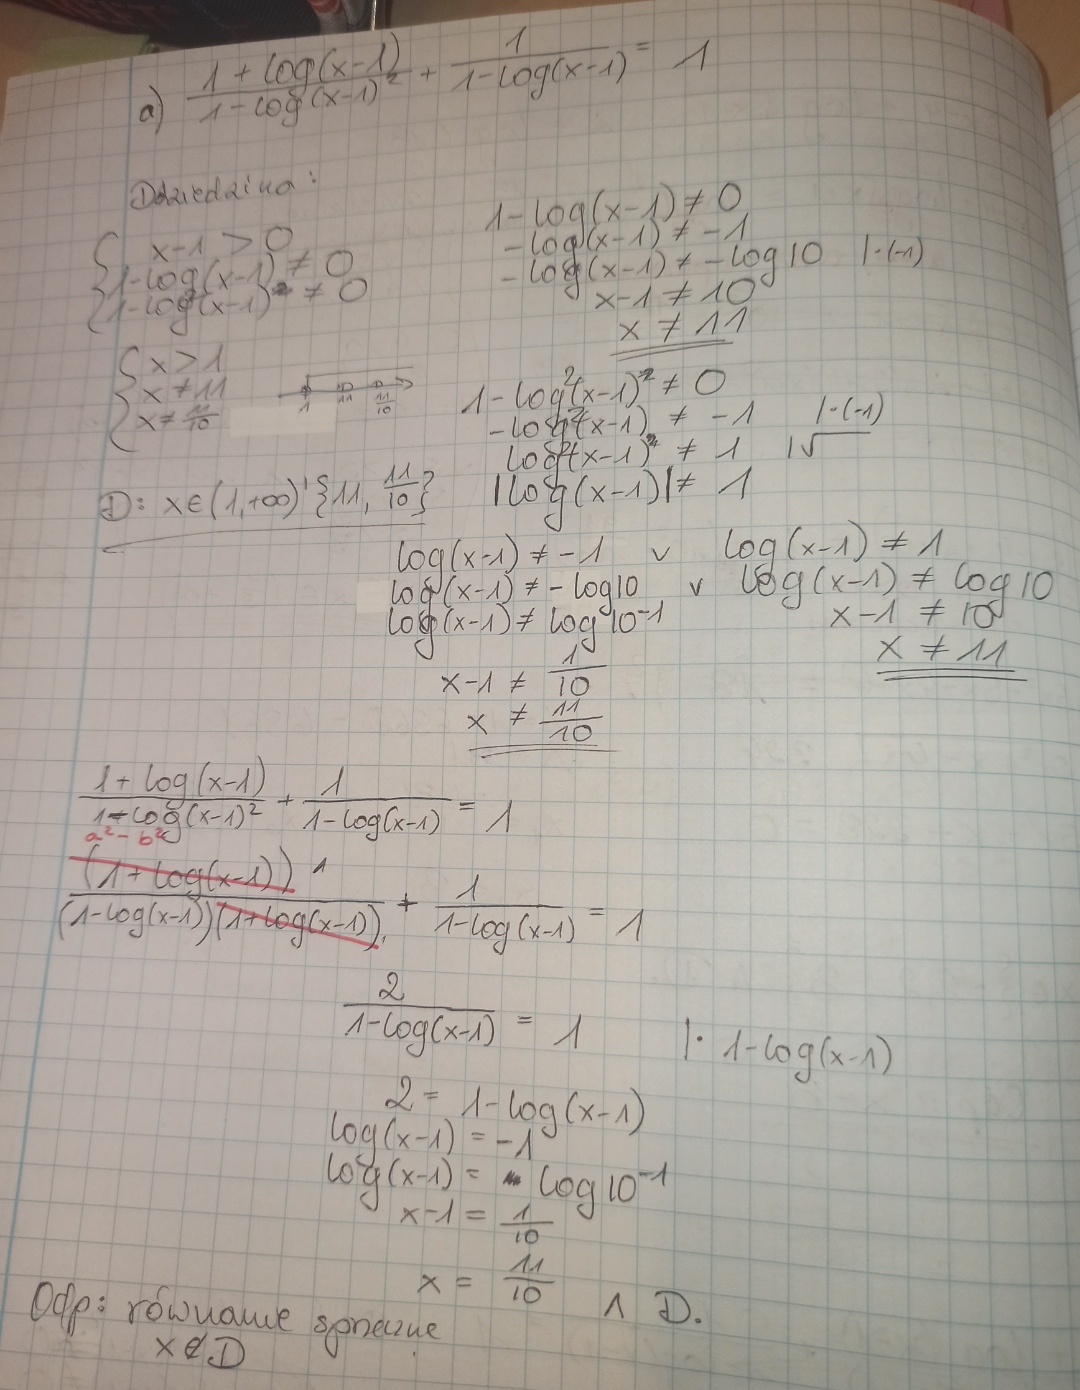 a) (1 + log(x-1))/(1 - log²(x-1)²) + 1/(1 - log(x-1)) = 1
Dziedzina:
{ x-1 > 0
1-log(x-1) ≠ 0
1-log²(x-1) ≠ 0
{ x > 1
x ≠ 11
x ≠ 11/10
1 11 11/10
D: x∈(1,+∞)\{11, 11/10}
1-log(x-1) ≠ 0
-log(x-1) ≠ -1
-log(x-1) ≠ -log10 |·(-1)
x-1 ≠ 10
x ≠ 11
1-log²(x-1)² ≠ 0
-log²(x-1) ≠ -1 |·(-1)
log²(x-1)² ≠ 1 |√
|log(x-1)| ≠ 1
log(x-1) ≠ -1 ∨ log(x-1) ≠ 1
log(x-1) ≠ -log10 ∨ log(x-1) ≠ log10
log(x-1) ≠ log10⁻¹ x-1 ≠ 10
x-1 ≠ 1/10 x ≠ 11
x ≠ 11/10
(1 + log(x-1))/(1 - log(x-1)²) + 1/(1 - log(x-1)) = 1
a² - b²
(1 + log(x-1)) 1/((1-log(x-1))(1+log(x-1))) + 1/(1-log(x-1)) = 1
2/(1-log(x-1)) = 1 |· 1-log(x-1)
2 = 1-log(x-1)
log(x-1) = -1
log(x-1) = log10⁻¹
x-1 = 1/10
x = 11/10 ∧ D.
Odp: równanie sprzeczne
x∉D